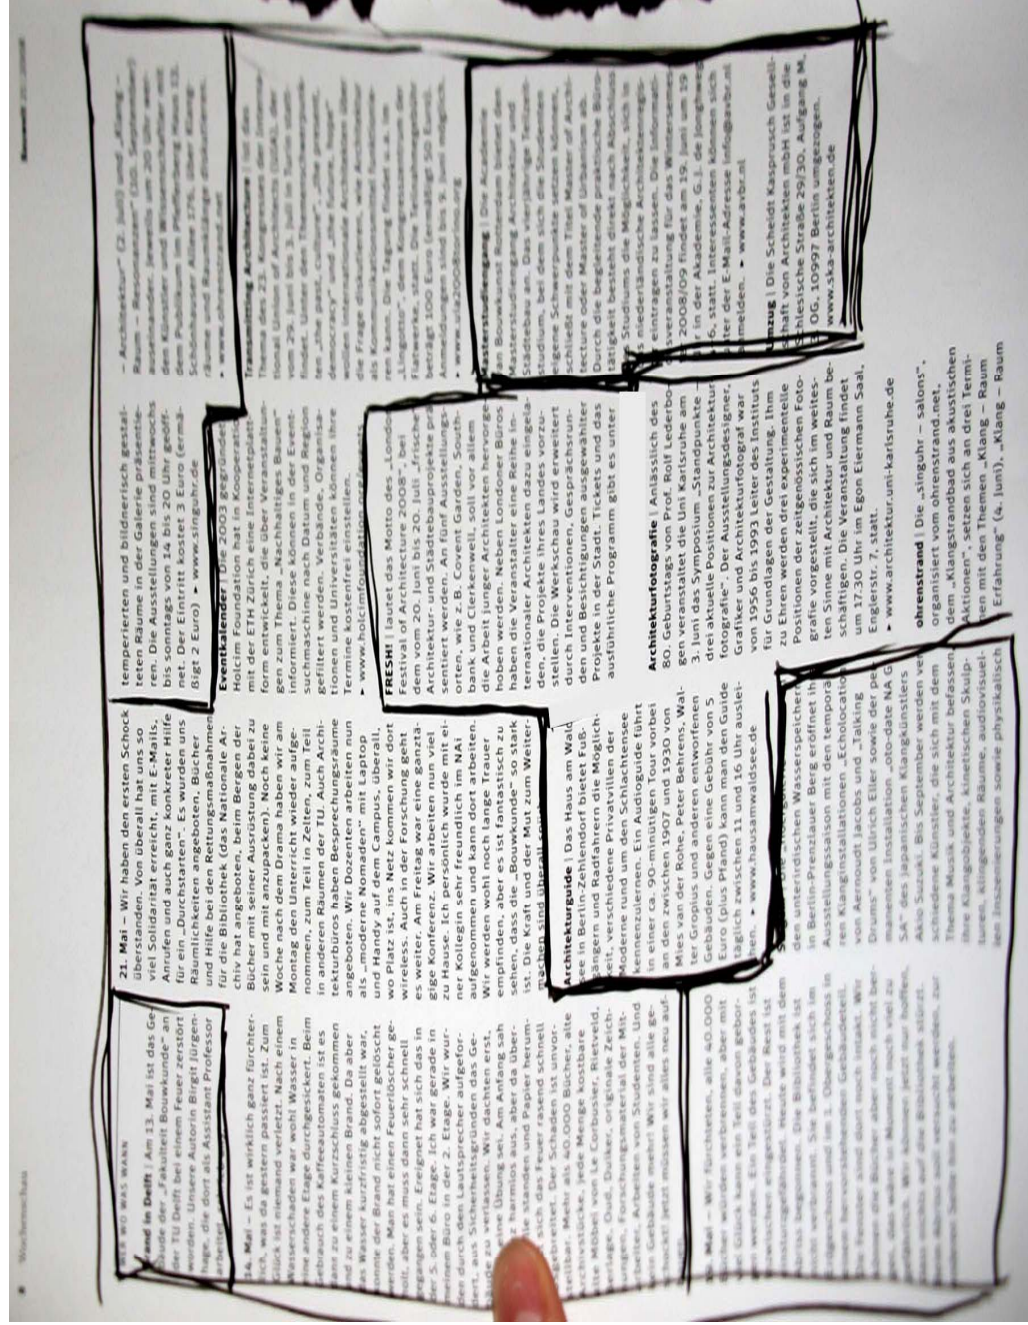 8 Wochenschau
WER WO WAS WANN
Brand in Delft | Am 13. Mai ist das Ge-
bäude der „Fakulteit Bouwkunde“ der
der TU Delft bei einem Feuer zerstört
worden. Unsere Autorin Birgit Jürgen-
hage, die dort als Assistant Professor
arbeitet,
14. Mai – Es ist wirklich ganz fürchter-
lich, was da gestern passiert ist. Zum
Glück ist niemand verletzt. Nach einem
Wasserschaden war wohl Wasser in
andere Etage durchgesickert. Beim
Gebrauch des Kaffeeautomaten ist es
dann zu einem Kurzschluss gekommen
und zu einem kleinen Brand. Da aber
das Wasser kurzfristig abgestellt war,
konnte der Brand nicht sofort gelöscht
werden. Man hat einen Feuerlöscher ge-
holt, aber es muss dann sehr schnell
gegangen sein. Ereignet hat sich das in
der 5. oder 6. Etage. Ich war gerade in
meinem Büro in der 2. Etage. Wir wur-
den durch den Lautsprecher aufgefor-
dert, aus Sicherheitsgründen das Ge-
bäude zu verlassen. Wir dachten erst,
eine Übung sei. Am Anfang sah
harmlos aus, aber da über-
alle standen und Papier herum-
sich das Feuer rasend schnell
ausgebreitet. Der Schaden ist unvor-
stellbar. Mehr als 40.000 Bücher, alte
jede Menge kostbare
alte Möbel von Le Corbusier, Rietveld,
Oud, Duiker, originale Zeich-
nungen, Forschungsmaterial der Mit-
arbeiter, Studentenarbeiten. Und
kein Gebäude mehr! Wir sind alle ge-
schockt! Jetzt müssen wir alles neu auf-
Mai – Wir fürchten, alle 40.000
Glück kann ein Teil davon gebor-
gen werden. Ein Teil des Gebäudes ist
eingestürzt. Der Rest ist
Heute wird mit dem
Abriss begonnen. Die Bibliothek ist
Sie befindet sich im
Erdgeschoss und im 1. Obergeschoss in
stehenden Gebäudeteil.
scheint intakt. Wir
21. Mai – Wir haben den ersten Schock
überstanden. Von überall hat uns so
viel Solidarität erreicht, mit E-Mails,
Anrufen und auch ganz konkreter Hilfe
für ein „Durchstarten“. Es wurden uns
Räumlichkeiten angeboten, Bücher
und Hilfe bei den Rettungsmaßnahmen
für die Bibliothek (das Nationale Ar-
chiv hat angeboten, beim Bergen der
Bücher mit seiner Ausrüstung dabei zu
sein und mit anzupacken). Noch keine
Woche nach dem Drama haben wir am
Montag den Unterricht wieder aufge-
nommen, zum Teil in Zelten, zum Teil
in anderen Räumen der TU. Auch Archi-
tekturbüros haben Besprechungsräume
angeboten. Wir Dozenten arbeiten nun
als „moderne Nomaden“ mit Laptop
und Handy auf dem Campus, überall,
wo Platz ist, ins Netz kommen wir dort
wireless. Auch in der Forschung geht
es weiter. Am Freitag war eine ganztä-
gige Konferenz. Wir arbeiten nun viel
zu Hause. Ich persönlich wurde mit ei-
ner Kollegin sehr freundlich im NAi
aufgenommen und kann dort arbeiten.
Wir werden wohl noch lange Trauer
empfinden, aber es ist fantastisch zu
sehen, dass die „Bouwkunde“ so stark
ist. Die Kraft und der Mut zum Weiter-
machen sind überall spürbar
Architekturguide | Das Haus am Wald-
see in Berlin-Zehlendorf bietet Fuß-
gängern und Radfahrern die Möglich-
keit, verschiedene Privatvillen der
Moderne rund um den Schlachtensee
kennenzulernen. Ein Audioguide führt
in einer ca. 90-minütigen Tour vorbei
an den zwischen 1907 und 1930 von
Mies van der Rohe, Peter Behrens, Wal-
ter Gropius und anderen entworfenen
Gebäuden. Gegen eine Gebühr von 5
Euro (plus Pfand) kann man den Guide
täglich zwischen 11 und 16 Uhr auslei-
hen. ▸ www.hausamwaldsee.de
den unterirdischen Wasserspeicher
in Berlin-Prenzlauer Berg eröffnet ihr
Ausstellungssaison mit den temporä-
ren Klanginstallationen „Echolocation“
von Aernoudt Jacobs und „Talking
Drums“ von Ulrich Eller sowie der per-
manenten Installation „oto-date NA G
SA“ des japanischen Klangkünstlers
Akio Suzuki. Bis September werden ver-
schiedene Künstler, die sich mit dem
Thema Musik und Architektur befassen,
ihre Klangobjekte, kinetischen Skulp-
turen, klingenden Räume, audiovisuel-
len Inszenierungen sowie physikalisch
temperierten und bildnerisch gestal-
teten Räume in der Galerie präsentie-
ren. Die Ausstellungen sind mittwochs
bis sonntags von 14 bis 20 Uhr geöff-
net. Der Eintritt kostet 3 Euro (ermä-
ßigt 2 Euro) ▸ www.singuhr.de
Eventkalender | Die 2003 gegründete
Holcim Foundation hat in Kooperation
mit der ETH Zürich eine Internetplatt-
form entwickelt, die über Veranstaltun-
gen zum Thema „Nachhaltiges Bauen“
informiert. Diese können in der Event-
suchmaschine nach Datum und Region
gefiltert werden. Verbände, Organisa-
tionen und Universitäten können ihre
Termine kostenfrei einstellen.
▸ www.holcimfoundation.org/events
FRESH! | lautet das Motto des „London
Festival of Architecture 2008“, bei
dem vom 20. Juni bis 20. Juli „frische“
Architektur- und Städtebauprojekte prä-
sentiert werden. An fünf Ausstellungs-
orten, wie z.B. Covent Garden, South-
bank und Clerkenwell, soll vor allem
die Arbeit junger Architekten hervorge-
hoben werden. Neben Londoner Büros
haben die Veranstalter eine Reihe in-
ternationaler Architekten dazu eingela-
den, die Projekte ihres Landes vorzu-
stellen. Die Werkschau wird erweitert
durch Interventionen, Gesprächsrun-
den und Besichtigungen ausgewählter
Projekte in der Stadt. Tickets und das
ausführliche Programm gibt es unter
Architekturfotografie | Anlässlich des
80. Geburtstags von Prof. Rolf Lederbo-
gen veranstaltet die Uni Karlsruhe am
3. Juni das Symposium „Standpunkte –
drei aktuelle Positionen zur Architektur-
fotografie“. Der Ausstellungsdesigner,
Grafiker und Architekturfotograf war
von 1956 bis 1993 Leiter des Instituts
für Grundlagen der Gestaltung. Ihm
zu Ehren werden drei experimentelle
Positionen der zeitgenössischen Foto-
grafie vorgestellt, die sich im weites-
ten Sinne mit Architektur und Raum be-
schäftigen. Die Veranstaltung findet
um 17.30 Uhr im Egon Eiermann Saal,
Englerstr. 7, statt.
▸ www.architektur.uni-karlsruhe.de
ohrenstrand | Die „singuhr – salons“,
organisiert vom ohrenstrand.net,
dem „Klangstrandbad aus akustischen
Aktionen“, setzen sich an drei Termi-
nen mit den Themen „Klang – Raum
– Erfahrung“ (4. Juni), „Klang – Raum
– Architektur“ (2. Juli) und „Klang –
Raum – Resonanzen“ (10. September)
auseinander. Jeweils um 20 Uhr wer-
den Künstler und Wissenschaftler mit
dem Publikum im Pfefferberg Haus 13,
Schönhauser Allee 176, über Klang-
räume und Raumklänge diskutieren.
▸ www.ohrenstrand.net
Transmitting Architecture | ist das
Thema des 23. Kongresses der Interna-
tional Union of Architects (UIA), der
vom 29. Juni bis 3. Juli in Turin statt-
findet. Unter den drei Themenschwerpunk-
ten „the past, culture“, „the present,
democracy“ und „the future, hope“
wollen internationale Architekten über
die Frage diskutieren, wie Architektur
als Kommunikator fungieren
kann. Die Tagung findet u.a. im
„Lingotto“, dem Kongresszentrum der
Fiatwerke, statt. Die Teilnahmegebühr
beträgt 100 Euro (ermäßigt 50 Euro).
Anmeldungen sind bis 9. Juni möglich.
▸ www.uia2008torino.org
Masterstudiengang | Die Academie
van Bouwkunst Rotterdam bietet den
Masterstudiengang Architektur und
Städtebau an. Das vierjährige Teilzeit-
studium, bei dem sich die Studenten
eigene Schwerpunkte setzen können,
schließt mit dem Titel Master of Archi-
tecture oder Master of Urbanism ab.
Durch die begleitende praktische Büro-
tätigkeit besteht direkt nach Abschluss
des Studiums die Möglichkeit, sich in
das niederländische Architektenregis-
ter eintragen zu lassen. Die Informati-
onsveranstaltung für das Wintersemester
2008/09 findet am 19. Juni um 19
Uhr in der Akademie, G.J. de Jonghweg
4-6, statt. Interessenten können sich
unter der E-Mail-Adresse info@avbr.nl
anmelden. ▸ www.avbr.nl
Umzug | Die Scheidt Kasprusch Gesell-
schaft von Architekten mbH ist in die
Schlesische Straße 29/30, Aufgang M,
OG, 10997 Berlin umgezogen.
www.ska-architekten.de